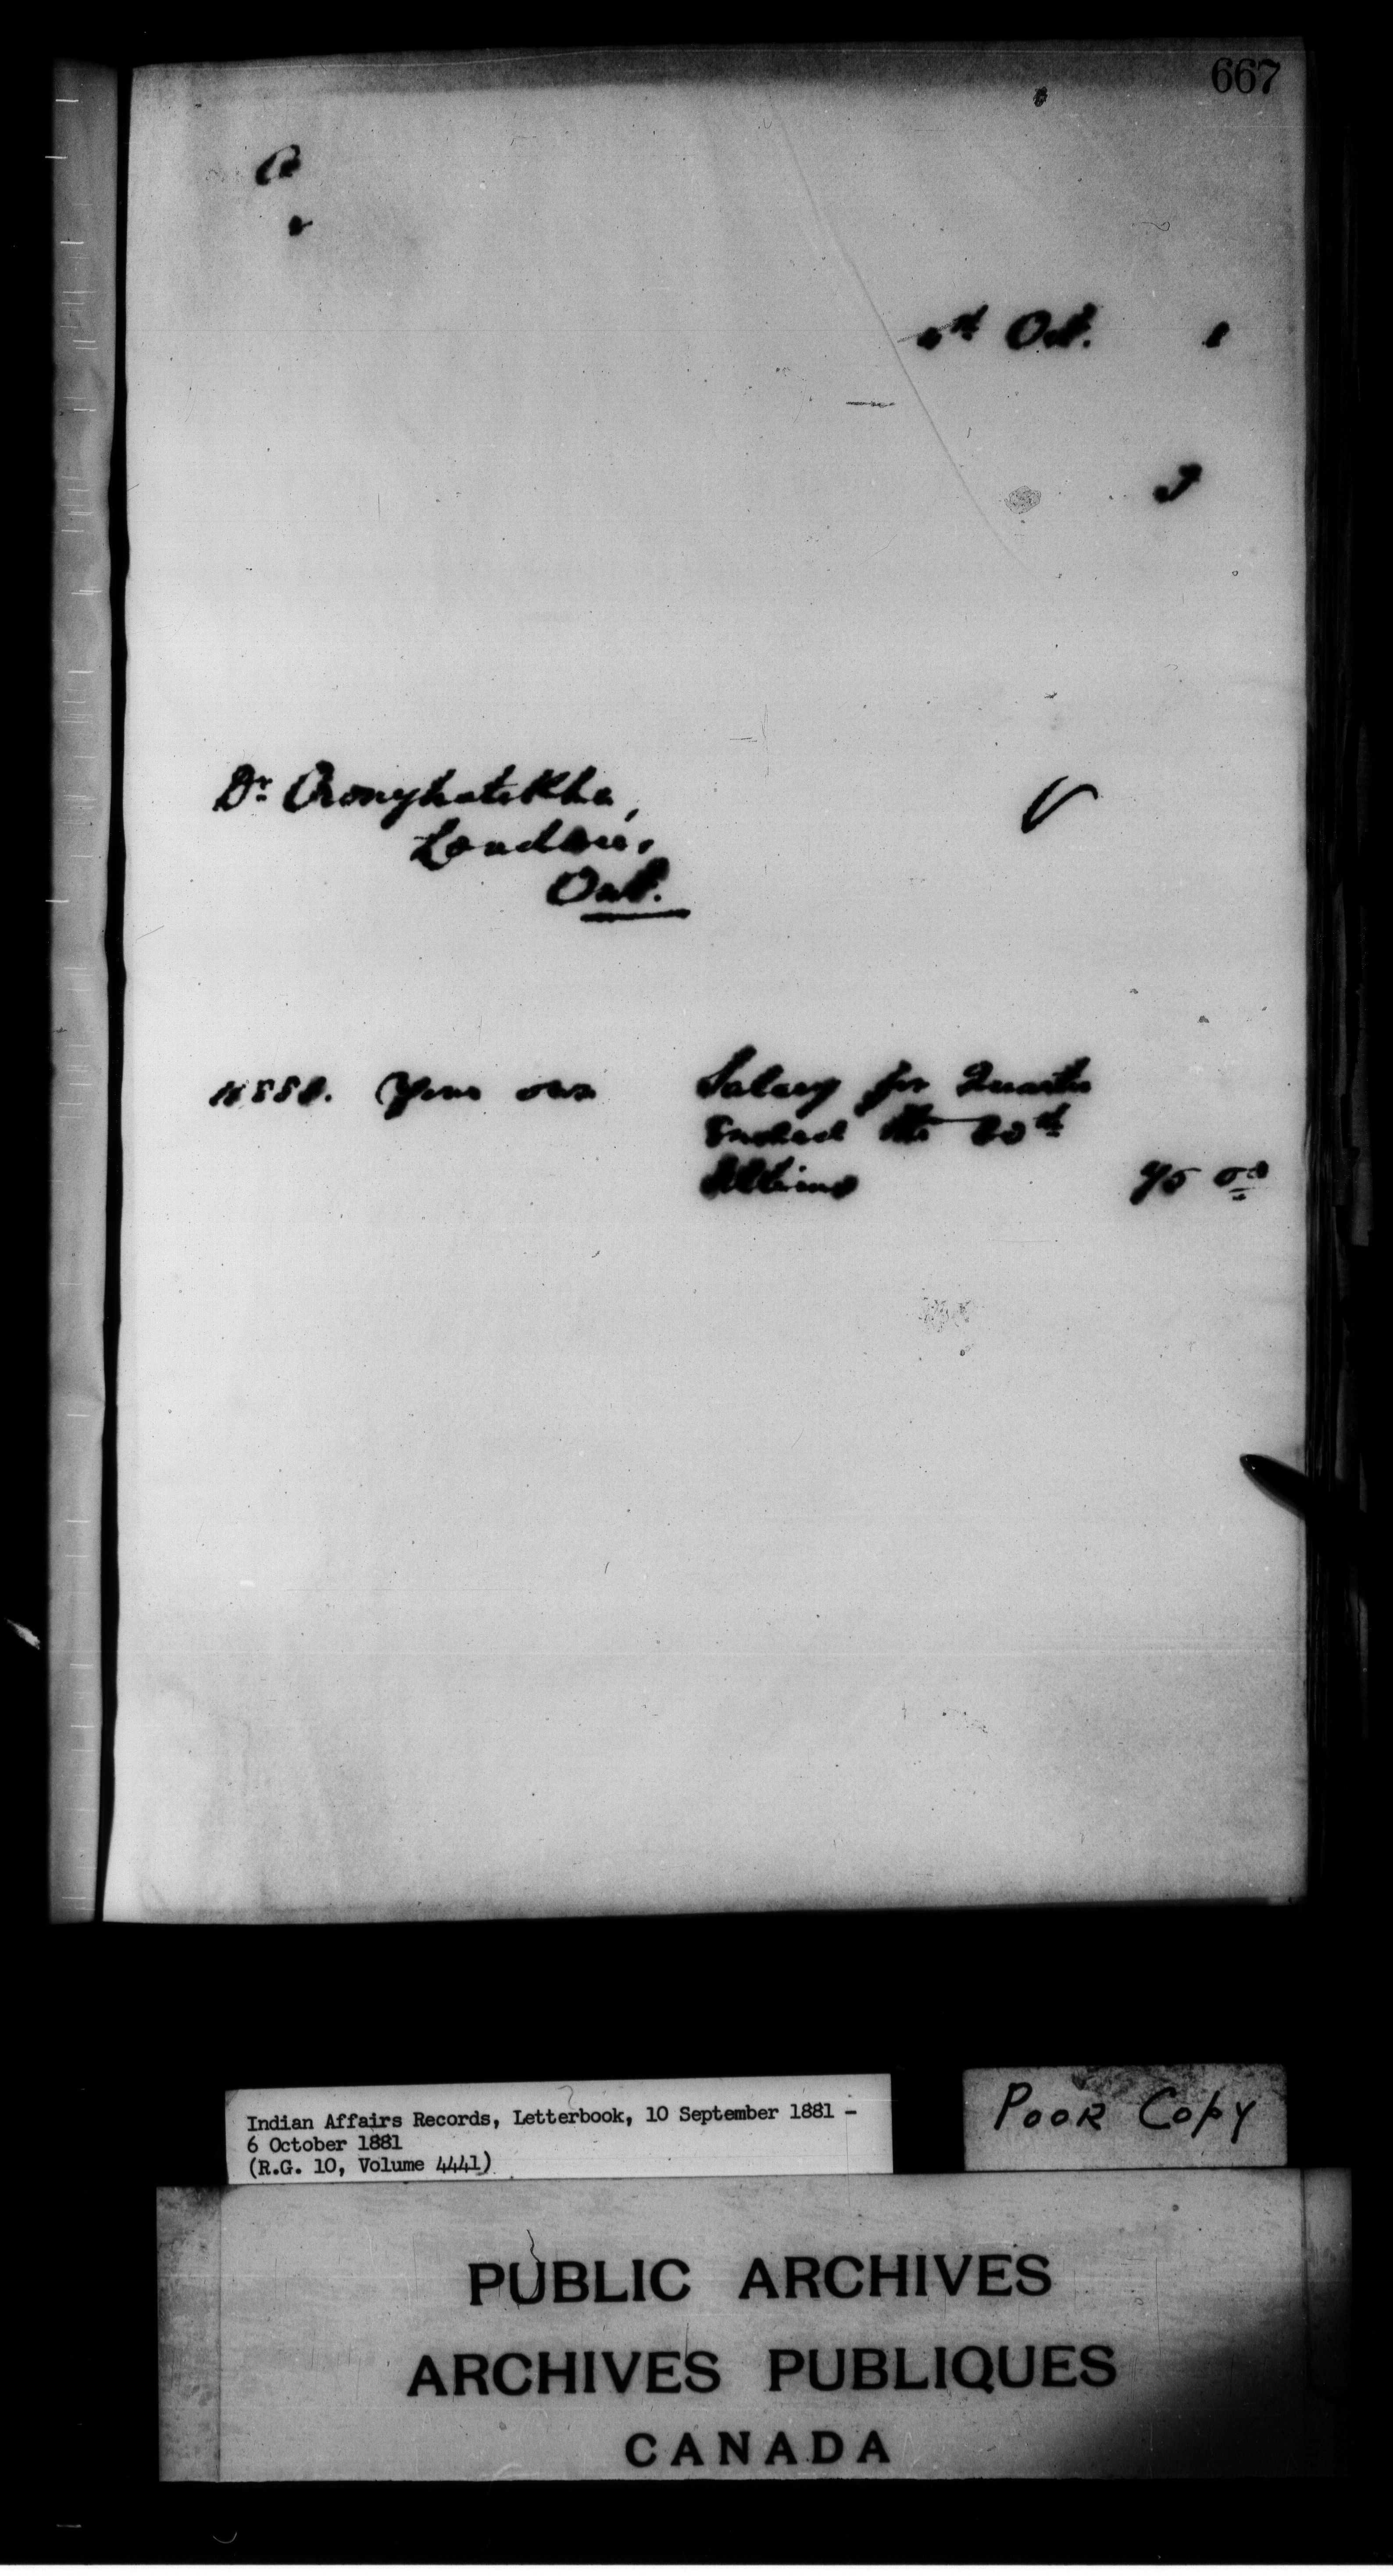 667
Oct. 1
Dr. Oronyhatekha,
London,
Ont.
Your own Salary for Quarter
Ended the 30th
Ultimo 75 00
Indian Affairs Records, Letterbook, 10 September 1881 -
6 October 1881
(R.G. 10, Volume 4441)
POOR COPY
PUBLIC ARCHIVES
ARCHIVES PUBLIQUES
CANADA